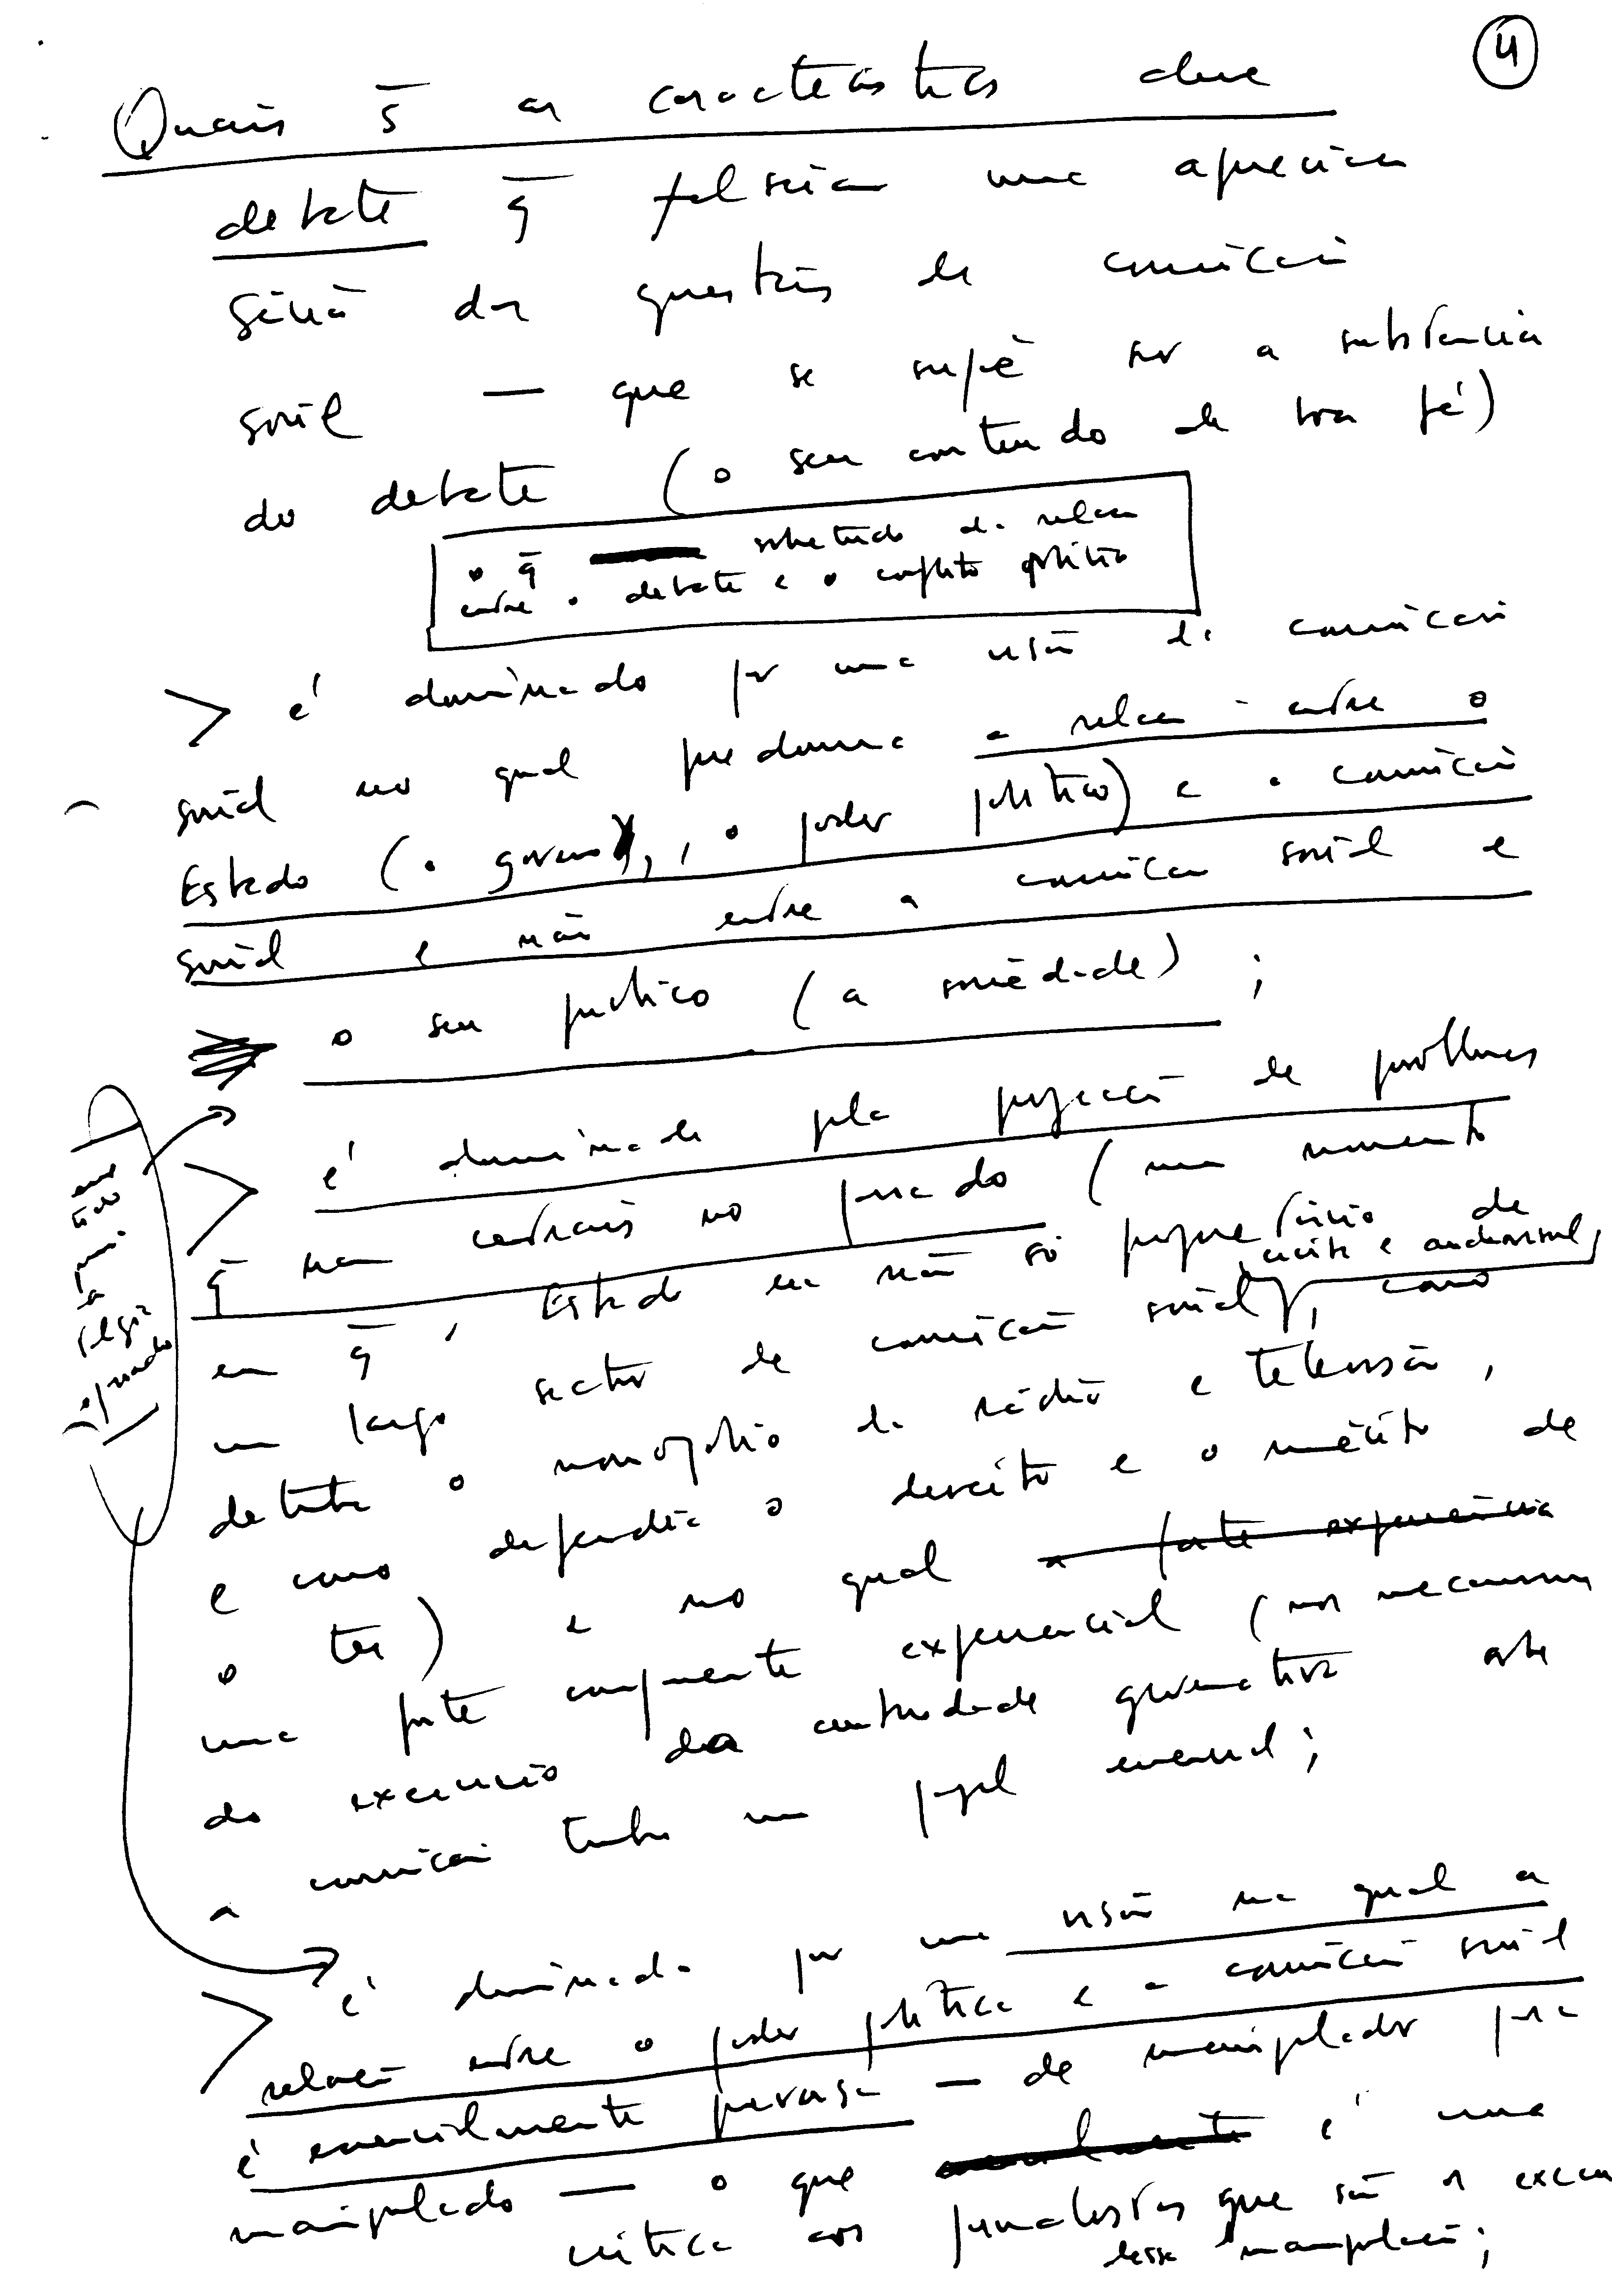 4
Quais s̄ as características deste
debate q̄ falseiam uma apreciação
séria das questões da comunicação
social — que se supõe ser a substância
do debate (o seu conteúdo de boa fé)
o q̄ sobretudo da relação
entre o debate e o conflito político
> é dominado por uma visão da comunicação
social no qual predomina a relação entre o
Estado (o governo, o poder político) e a comunicação
social e não entre a comunicação social e
o seu público (a sociedade);
> é dominado pela projecção de problemas
q̄ eram centrais no passado (um momento
em q̄ o Estado era não só proprietário de
um largo sector da comunicação social, escrita e audiovisual, como
detinha o monopólio da rádio e televisão,
e como defendia o direito e o mérito de
o ter) e no qual a forte experiência
uma forte componente experiencial (nos mecanismos
do exercício da autoridade governativa onde
a comunicação tinha um papel essencial;
> é dominado por uma visão na qual a
relação entre o poder político e a comunicação social
é essencialmente perversa — de manipulador para
manipulado — o que é uma
crítica aos jornalistas que são os
dessa manipulação;